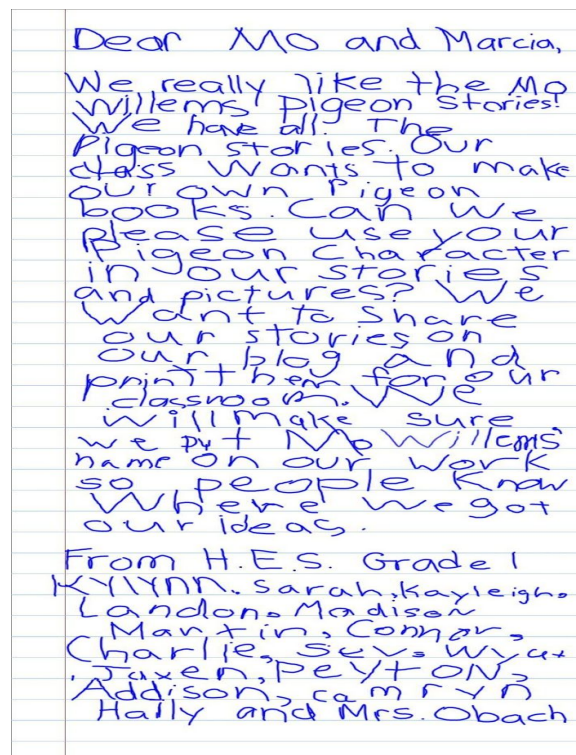 Dear Mo and Marcia,
We really like the Mo
Willems Pigeon Stories!
We have all. The
Pigeon stories. Our
class wants to make
our own Pigeon
books. Can we
please use your
Pigeon Character
in our stories
and pictures? We
want to share
our stories on
our blog and
print them for our
classroom. We
will make sure
we put Mo Willems'
name on our work
so people know
where we got
our ideas.
From H.E.S. Grade 1
KYlYnn, Sarah, Kayleigh,
Landon, Madison
Martin, Connor,
Charlie, Sev, Wyatt
, Jaxen, PeYtON,
Addison, camryn
Hally and Mrs. Obach